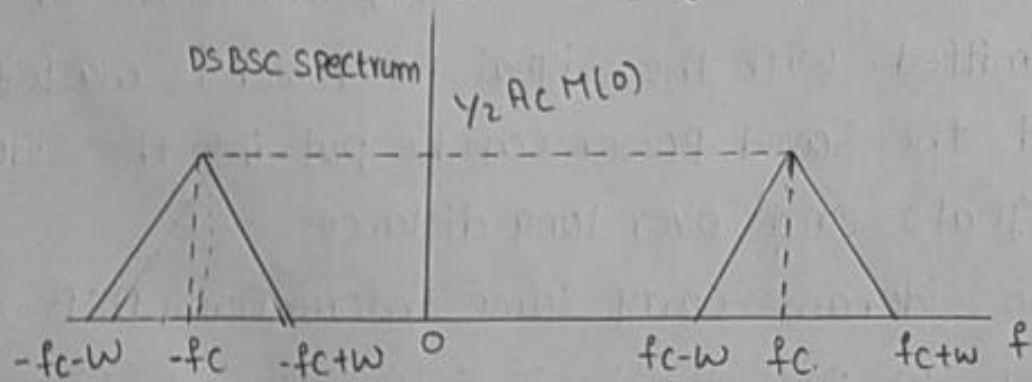 DSBSC Spectrum
½ Ac M(0)
-fc-W -fc -fc+W 0 fc-W fc fc+w f